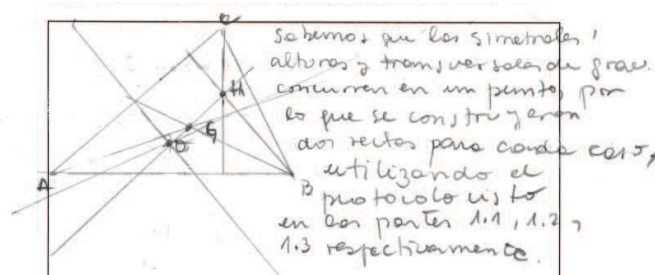 C
sabemos que las simetrales,
alturas y transversales de grav.
concurren en un punto, por
lo que se construyeron
dos rectas para cada caso,
utilizando el
protocolo visto
en las partes 1.1, 1.2,
1.3 respectivamente.
H
G
O
A
B